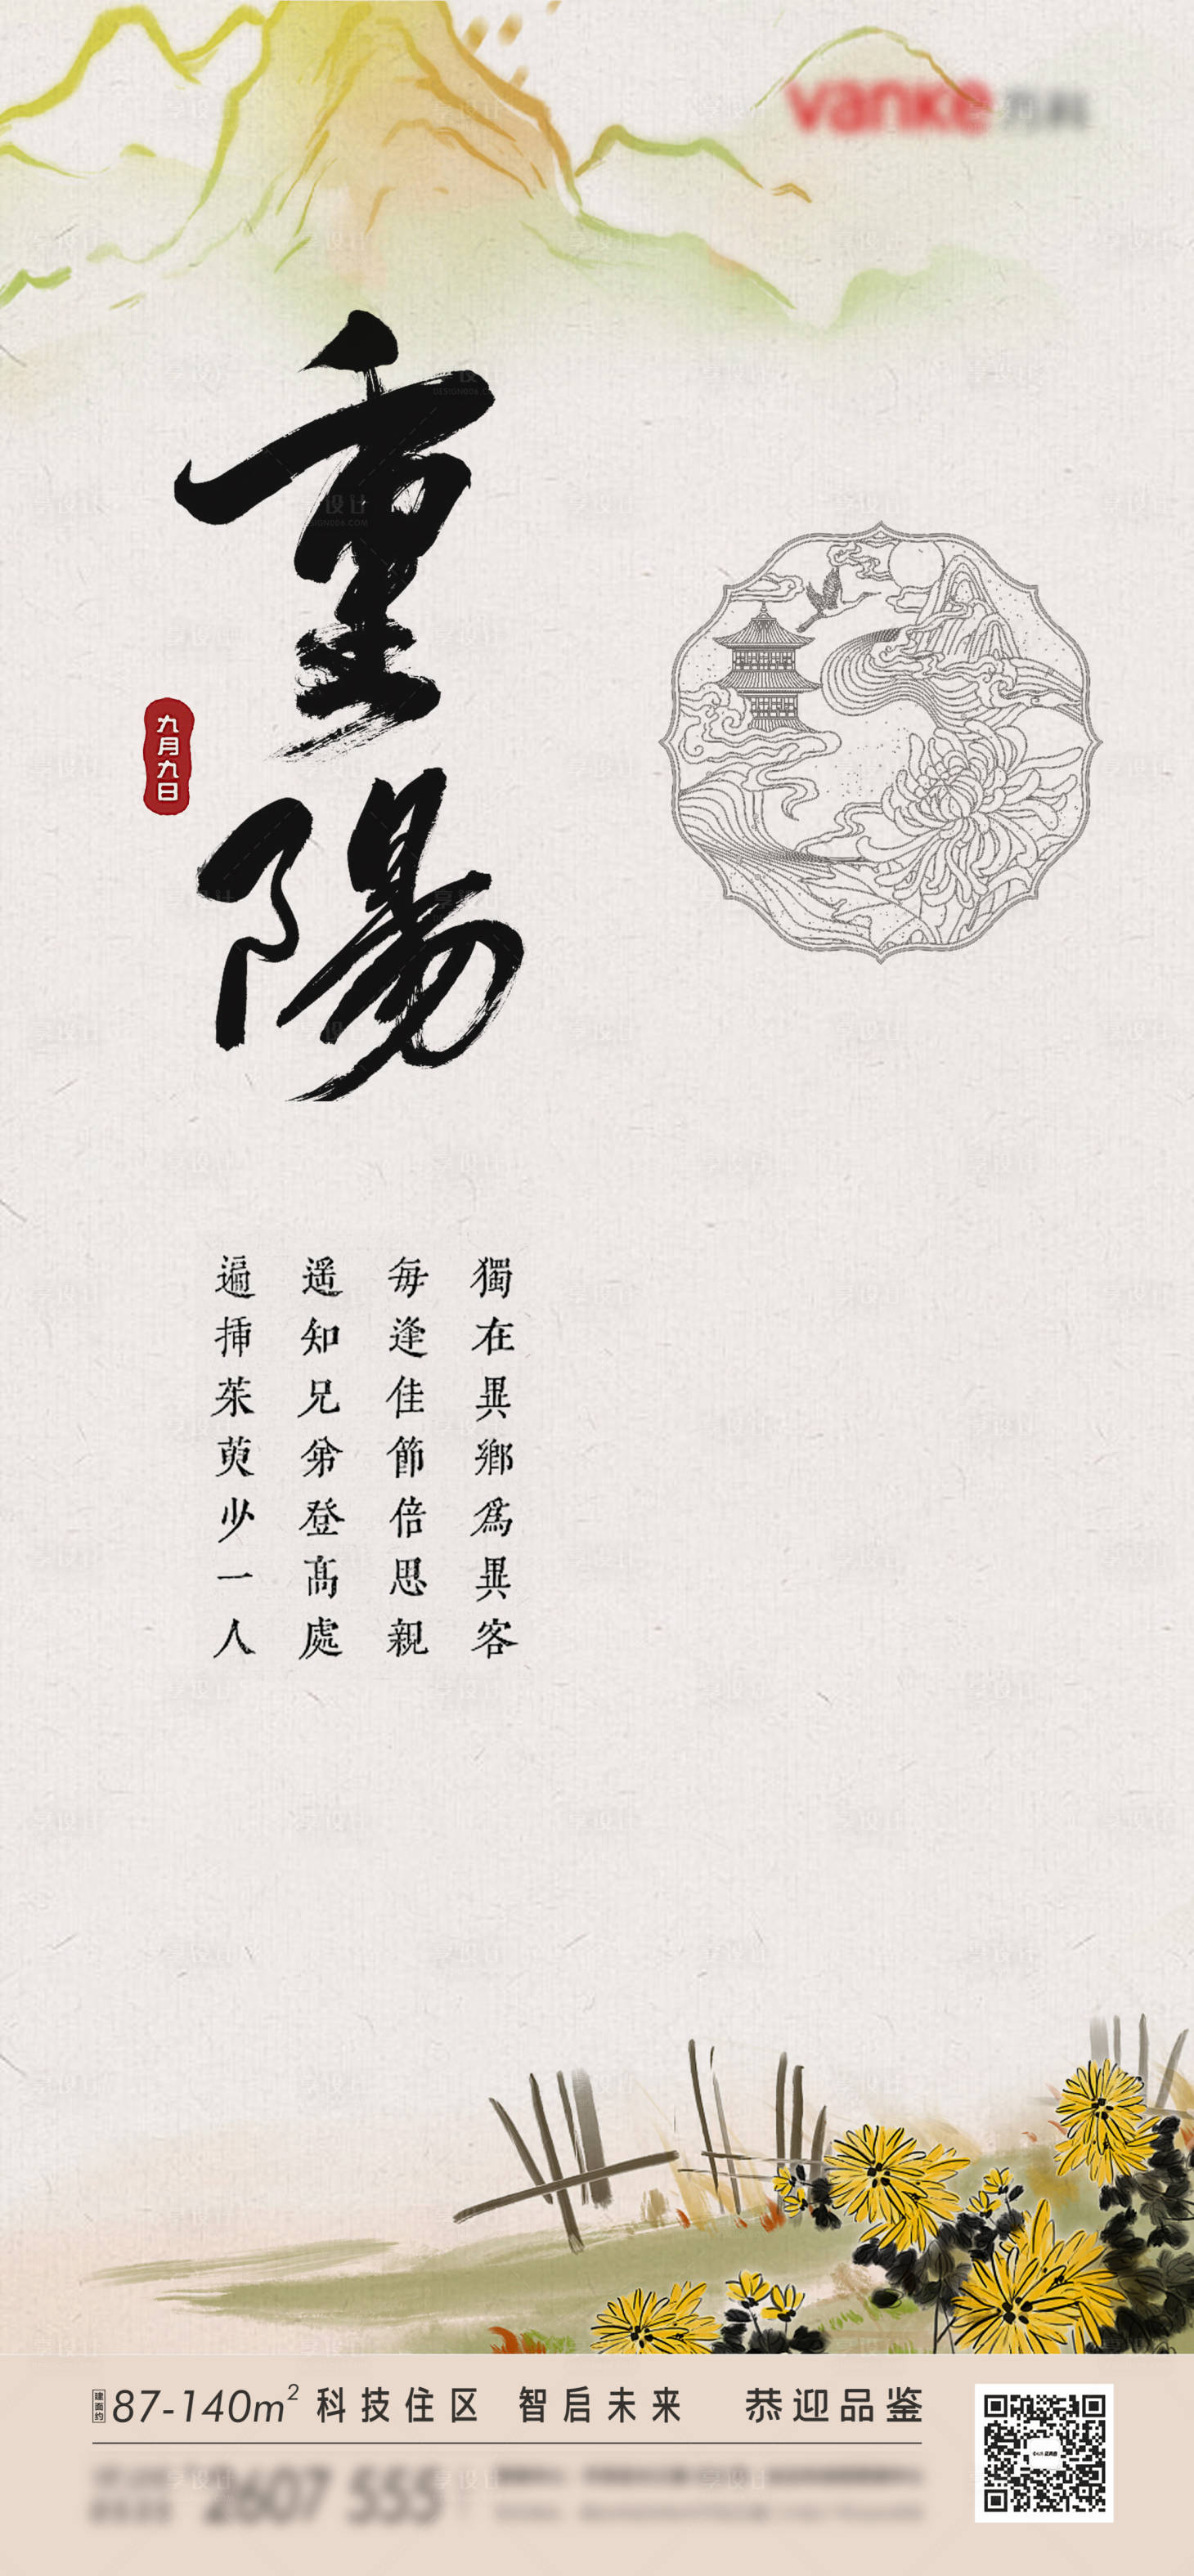 vanke
重陽
九月九日
獨在異鄉為異客
每逢佳節倍思親
遥知兄弟登高處
遍插茱萸少一人
建面约87-140m² 科技住区 智启未来 恭迎品鉴